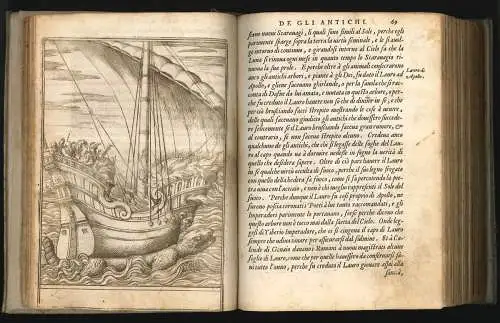 DE GLI ANTICHI. 69
siano nuovi Scaravagi, li quali sono simili al Sole, perche egli
parimente sparge sopra la terra la virtù seminale, e le si avol-
ge intorno di continuo, e girandosi intorno al Cielo fa che la
Luna si rinuova ogni mese in quanto tempo lo Scaravagio ri-
nuova la sua prole. E perche oltre à gli animali consecrarono
anco gli antichi arbori, e piante à gli Dei, fu dato il Lauro ad
Apollo, e gliene facevano ghirlande, ò per la favola che si rac-
conta di Dafne da lui amata, e mutata in questo arbore, o per-
che fu creduto il Lauro havere non sò che di divino in se; e per-
ciò che brusciando facci strepito mostrando le cose à venire,
delle quali facevano giudicio gli antichi che dovessero succe-
dere felicemente se il Lauro brusciando faceva gran romore, &
di contrario, se non faceva strepito alcuno. Credeva anco
qualchuno de gli antichi, che chi si legasse delle foglie del Lau-
ro al capo quando và à dormire vedesse in sogno la verità di
quello che desidera sapere. Oltre di ciò pare havere il Lauro
in se qualche virtù occulta di fuoco, perche il suo legno fregato
con quello della hedera fa fuoco, come si fa percotendo la pie-
tra viva con l'acciaio, e non è chi meglio rappresenti il Sole del
fuoco. Perche dunque il Lauro fu così proprio di Apollo, ne
furono postia coronati i Poeti à lui tanto raccomandati, e gli
Imperadori parimente lo portavano, forse perche dicono che
questo arbore non è tocco mai dalla saetta del Cielo. Onde leg-
gesi di Tiberio Imperadore, che ei si cingeva il capo di Lauro
sempre che udiva tonare per assicurarsi dal fulmine. Et à Ca-
lende di Genaio davano i Romani à nuovi magistrati alcune
foglie di Lauro, come che per quelle havessero da conservarsi sa-
ni tutto l'anno, perche fu creduto il Lauro giovare assai alla
sanità,
Lauro di
Apollo.